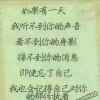 如果有一天
我听不到你的声音
看不到你的身影
得不到你的消息
即使忘了自己
我也会记得自己对你